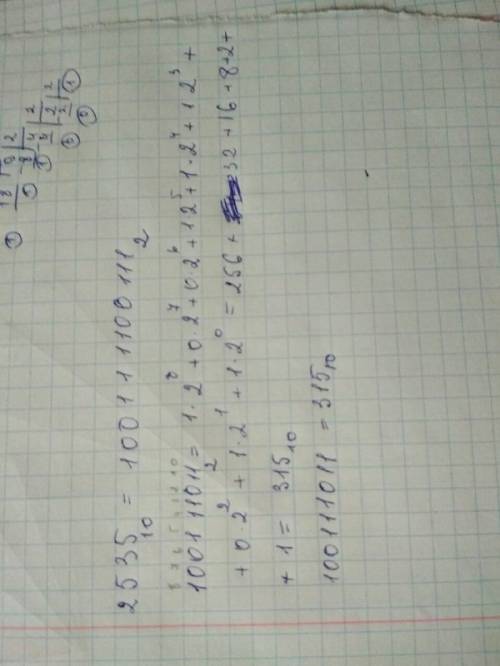 2535₁₀ = 100111100111₂
8 7 6 5 4 3 2 1 0
100111011₂ = 1·2⁸ + 0·2⁷ + 0·2⁶ + 1·2⁵ + 1·2⁴ + 1·2³ +
+ 0·2² + 1·2¹ + 1·2⁰ = 256 + 32 + 16 + 8 + 2 +
+ 1 = 315₁₀
100111011 = 315₁₀